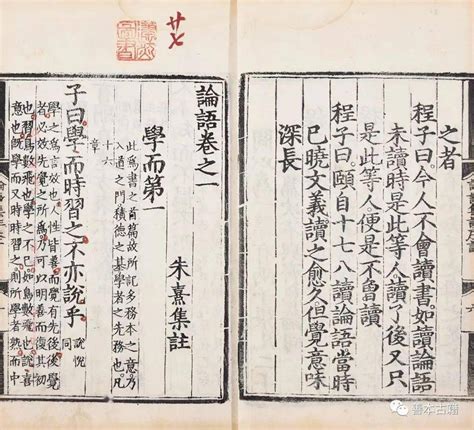 之者
程子曰今人不會讀書如讀論語
未讀時是此等人讀了後又只
是此等人便是不曾讀
程子曰頤自十七八讀論語當時
已曉文義讀之愈久但覺意味
深長
廿七
論語卷之一
學而第一
朱熹集註
此爲書之首篇故所記多務本之意乃
入道之門積德之基學者之先務也凡
十六
章
子曰學而時習之不亦說乎
說悅
同
學之爲言效也人性皆善而覺有先後後覺
者必效先覺之所爲乃可以明善而復其初
也習鳥數飛也學之不已如鳥數飛也說喜
意也既學而又時時習之則所學者熟而中
善本古籍